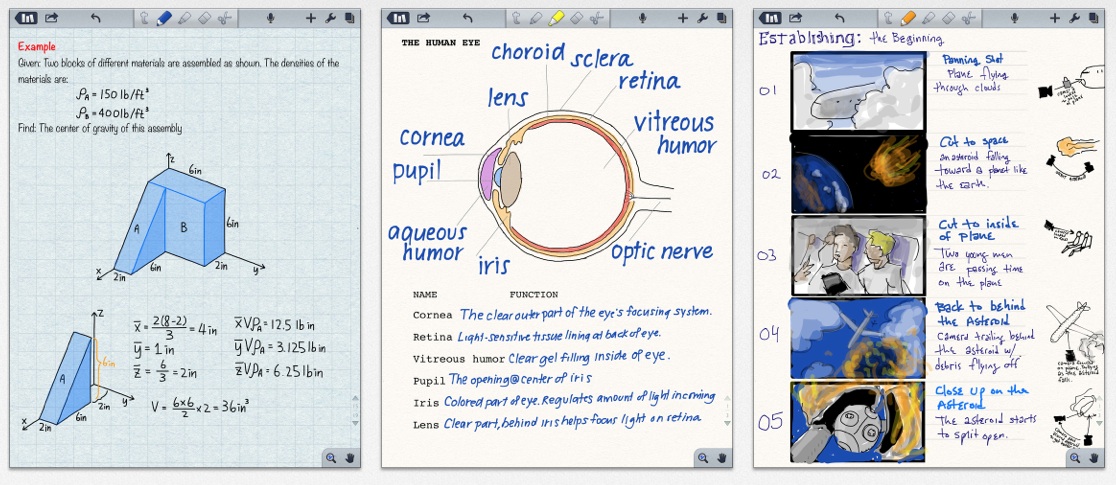 Example
Given: Two blocks of different materials are assembled as shown. The densities of the
materials are:
ρA = 150 lb/ft³
ρB = 400 lb/ft³
Find: The center of gravity of this assembly
z
6in
A
B
6in
x
2in
6in
2in
y
z
6in
A
2in
x
2in
6in
y
x̄ = 2(8-2)/3 = 4in
ȳ = 1in
z̄ = 6/3 = 2in
V = 6×6/2 × 2 = 36in³
x̄VρA = 12.5 lb in
ȳVρA = 3.125 lb in
z̄VρA = 6.25 lb in
THE HUMAN EYE
choroid
sclera
retina
lens
vitreous
humor
cornea
pupil
aqueous
humor
iris
optic nerve
NAME FUNCTION
Cornea The clear outer part of the eye's focusing system.
Retina Light-sensitive tissue lining at back of eye.
Vitreous humor Clear gel filling inside of eye.
Pupil The opening @ center of iris
Iris Colored part of eye. Regulates amount of light incoming
Lens Clear part, behind iris helps focus light on retina
Establishing: the Beginning
01
Panning Shot
Plane flying
through clouds
02
Cut to space
an asteroid falling
toward a planet like
the earth.
03
Cut to inside
of Plane
Two young men
are passing time
on the plane
04
Back to behind
the Asteroid
Camera trailing behind
the asteroid w/
debris flying off
05
Close up on the
Asteroid
The asteroid starts
to split open.